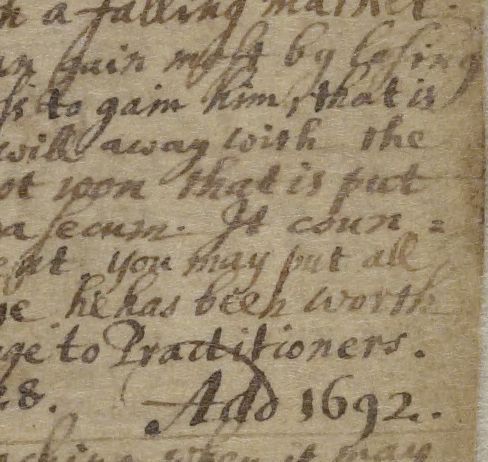 a falling market.
gain most by losing
to gain him, that is
will away with the
upon that is put
secum. It coun =
you may put all
he has been worth
to Practitioners.
8. Add 1692.
when it may